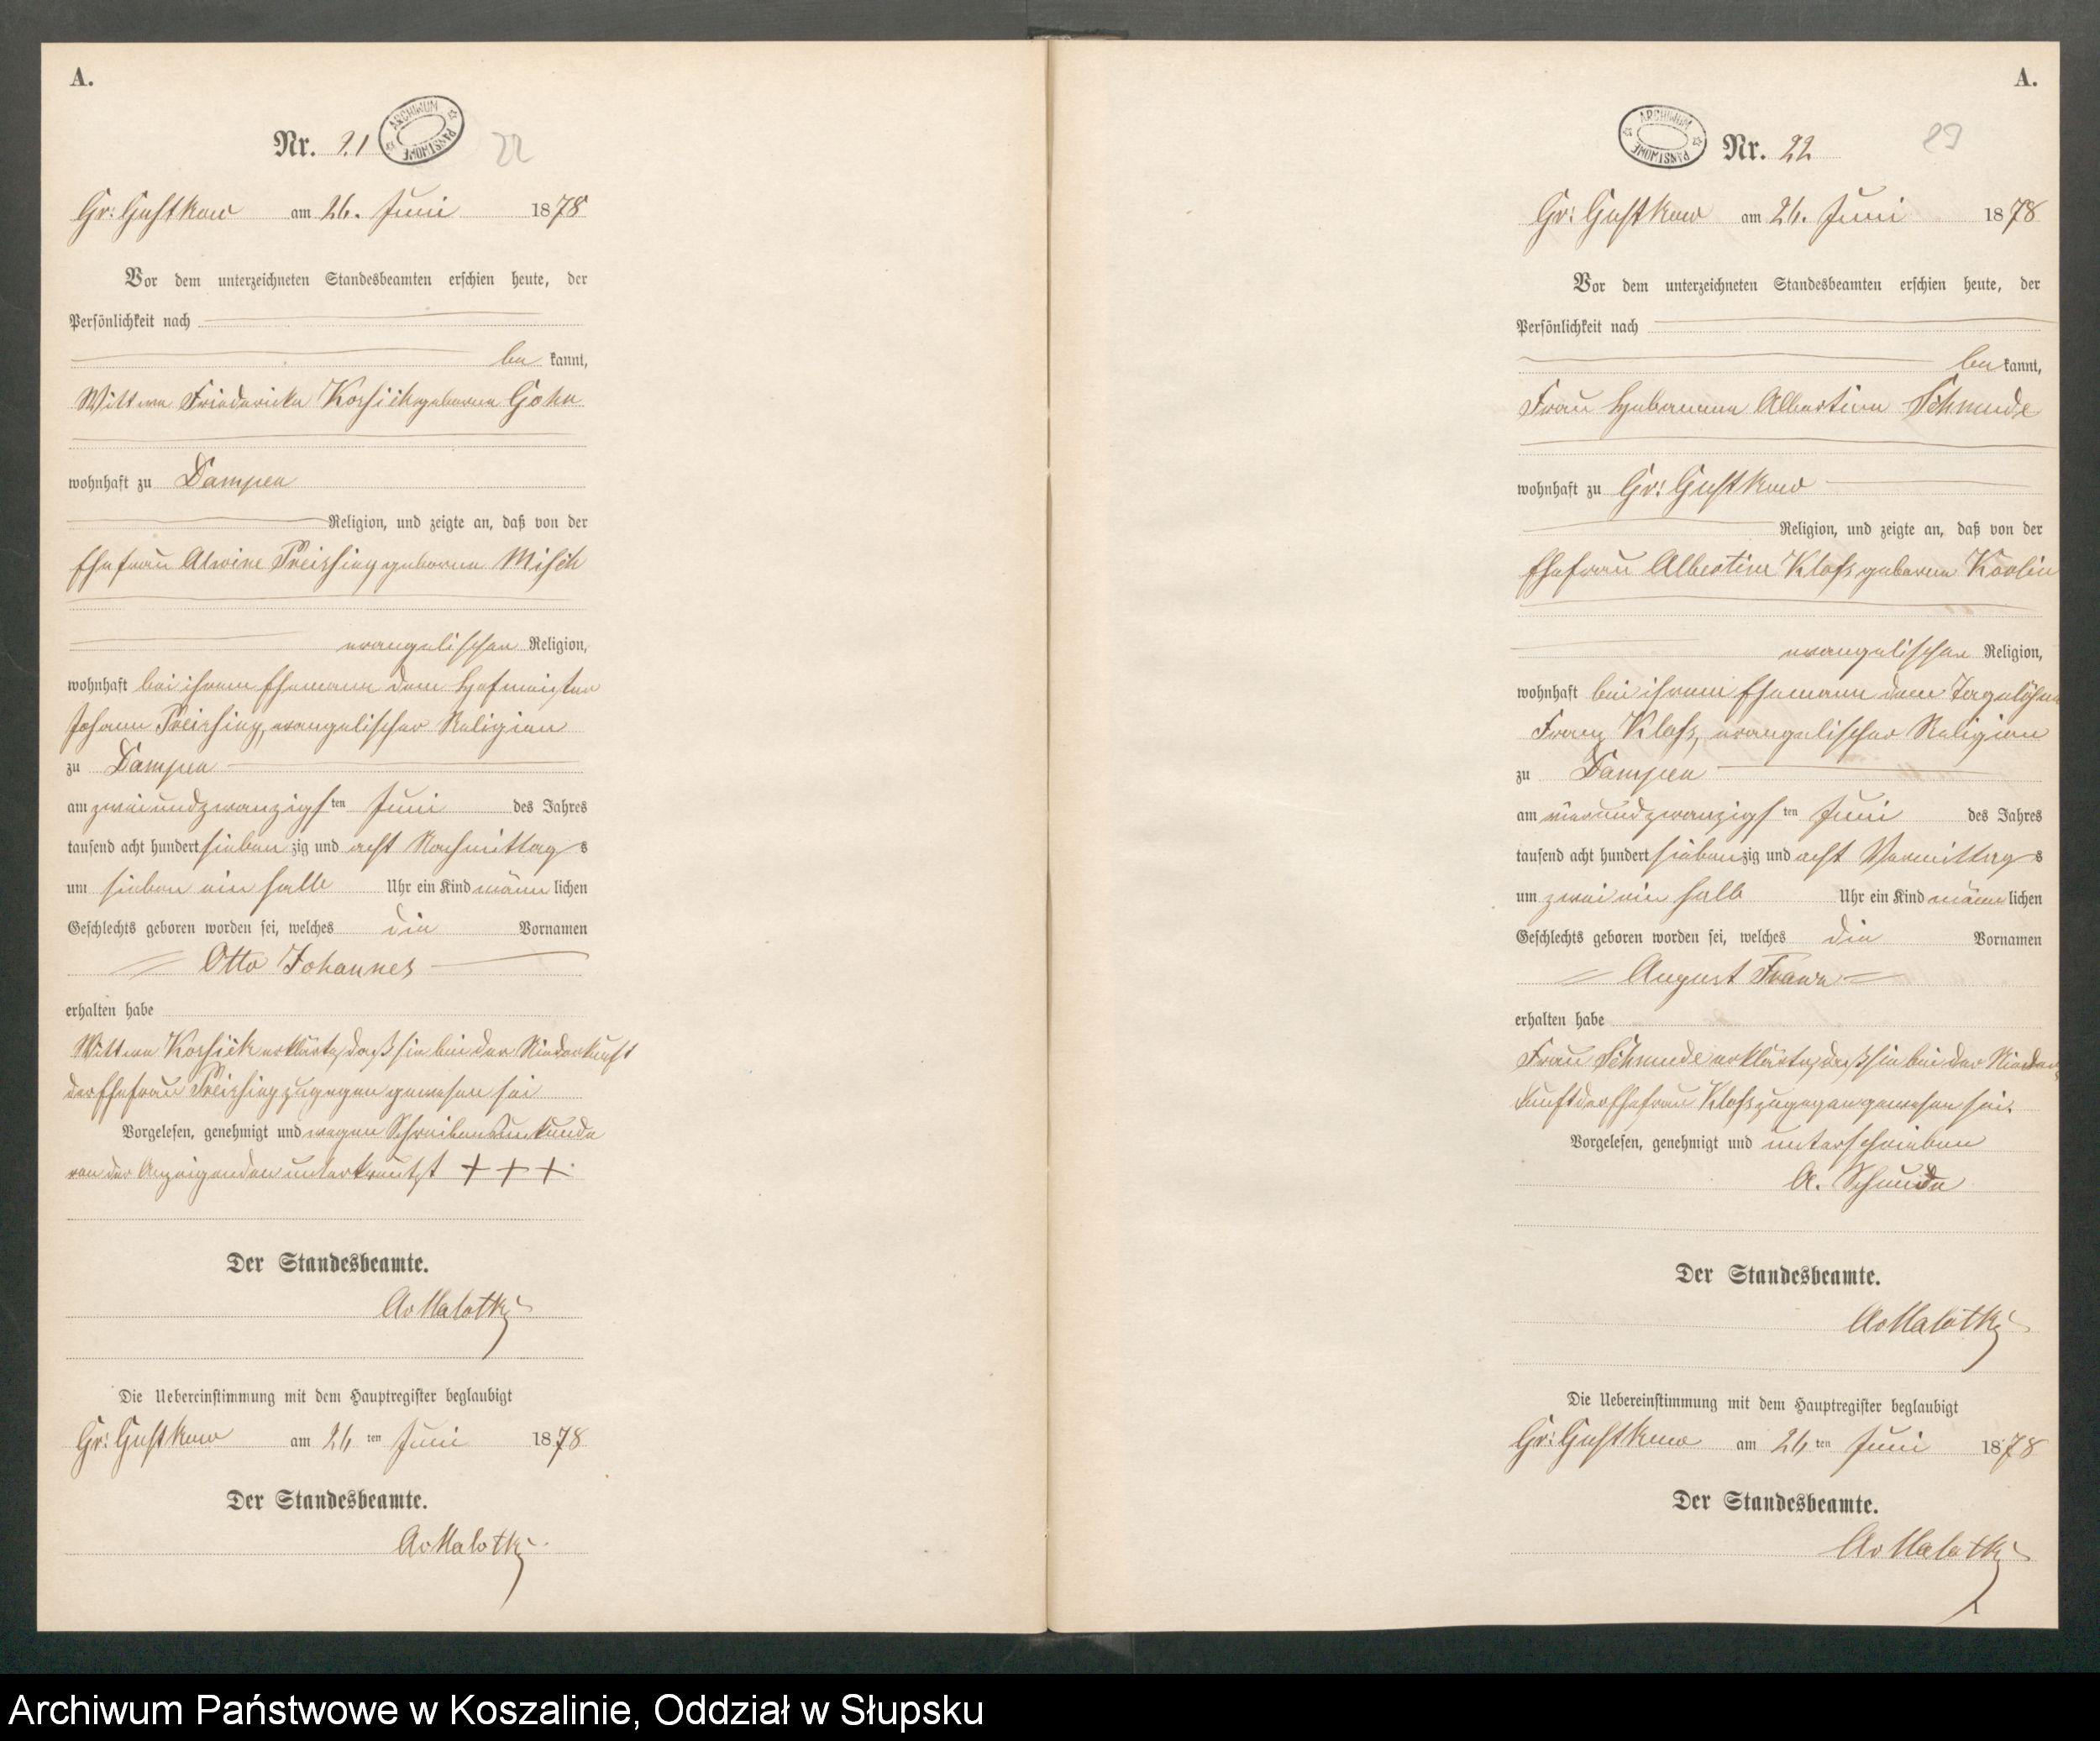 A.
Nr. 21
ARCHIWUM PAŃSTWOWE
22
Gr: Gustkow am 26. Juni 1878
Vor dem unterzeichneten Standesbeamten erschien heute, der
Persönlichkeit nach
be kannt,
Wittwe Friedericke geborene Gohn
wohnhaft zu Dampen
Religion, und zeigte an, daß von der
Ehefrau Alwine geborene Misch
evangelischer Religion,
wohnhaft bei ihrem Ehemann dem Hofmeister
Johann evangelischer Religion
zu Dampen
am zweiundzwanzigsten Juni des Jahres
tausend acht hundert siebenzig und acht Nachmittags
um sieben ein halb Uhr ein Kind männlichen
Geschlechts geboren worden sei, welches die Vornamen
Otto Johannes
erhalten habe
Wittwe erklärte, daß sie bei der Niederkunft
der Ehefrau zugegen gewesen sei
Vorgelesen, genehmigt und wegen Schreibensunkunde
von der Anzeigenden unterkreuzt + + +.
Der Standesbeamte.
AvMalotky
Die Uebereinstimmung mit dem Hauptregister beglaubigt
Gr: Gustkow am 26ten Juni 1878
Der Standesbeamte.
AvMalotky.
A.
ARCHIWUM PAŃSTWOWE
Nr. 22
23
Gr: Gustkow am 26. Juni 1878
Vor dem unterzeichneten Standesbeamten erschien heute, der
Persönlichkeit nach
be kannt,
Frau Hebamme Albertine Schmude
wohnhaft zu Gr: Gustkow
Religion, und zeigte an, daß von der
Ehefrau Albertine Klofs geborene
evangelischer Religion,
wohnhaft bei ihrem Ehemann dem Tagelöhner
Franz Klofs, evangelischer Religion
zu Dampen
am vierundzwanzigsten Juni des Jahres
tausend acht hundert siebenzig und acht Vormittags
um zwei ein halb Uhr ein Kind männlichen
Geschlechts geboren worden sei, welches die Vornamen
August Franz
erhalten habe
Frau Schmude erklärte, daß sie bei der Nieder-
kunft der Ehefrau Klofs zugegen gewesen sei.
Vorgelesen, genehmigt und unterschrieben
A. Schmude
Der Standesbeamte.
AvMalotky
Die Uebereinstimmung mit dem Hauptregister beglaubigt
Gr: Gustkow am 26ten Juni 1878
Der Standesbeamte.
AvMalotky
Archiwum Państwowe w Koszalinie, Oddział w Słupsku